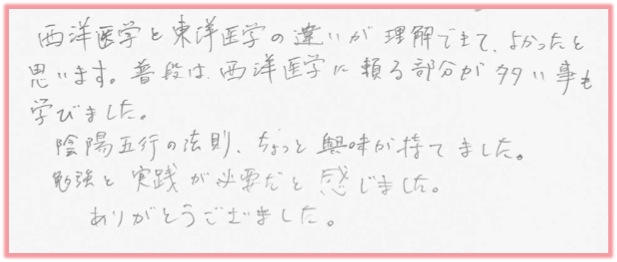 西洋医学と東洋医学の違いが理解できて、よかったと
思います。普段は、西洋医学に頼る部分が多い事も
学びました。
陰陽五行の法則、ちょっと興味が持てました。
勉強と実践が必要だと感じました。
ありがとうございました。